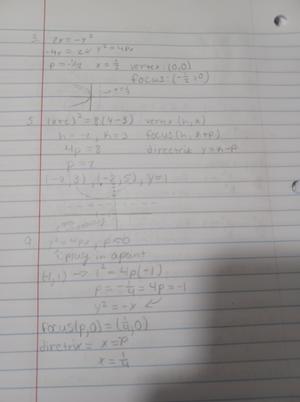 3. 2x = -y²
-4x = 2x y² = 4px
p = -1/2 x = 1/2 vertex: (0,0)
focus: (-1/2, 0)
x = 1/2
5. (x+2)² = 8(y-3) vertex (h,k)
h = -2, k = 3 focus (h, k+p)
4p = 8 directrix y = k-p
p = 2
(-2, 3), (-2, 5), y = 1
9. y² = 4px, p<0
plug in a point
(-1, 1) → 1² = 4p(-1)
p = -1/4 = 4p = -1
y² = -x
focus (p,0) = (1/4, 0)
directrix = x = p
x = 1/4